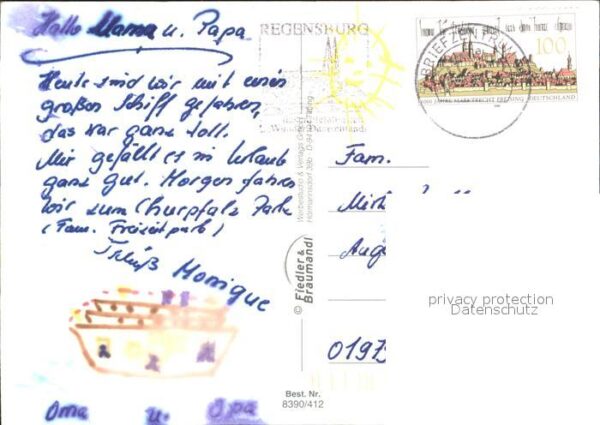 Hallo Mama u. Papa
Heute sind wir mit einen
großen Schiff gefahren,
das war ganz toll.
Mir gefällt es in Urlaub
ganz gut. Morgen fahren
wir zum Churpfalz Park
(Fam. Freizeitpark)
Gruß Monique
Oma u. Opa
REGENSBURG
BRIEFZENTRUM
100
1000 JAHRE MARKTRECHT FREISING DEUTSCHLAND
Werbestudio & Verlags GmbH
© Fiedler &
Braumandl
Best. Nr.
8390/412
Fam.
0197
privacy protection
Datenschutz